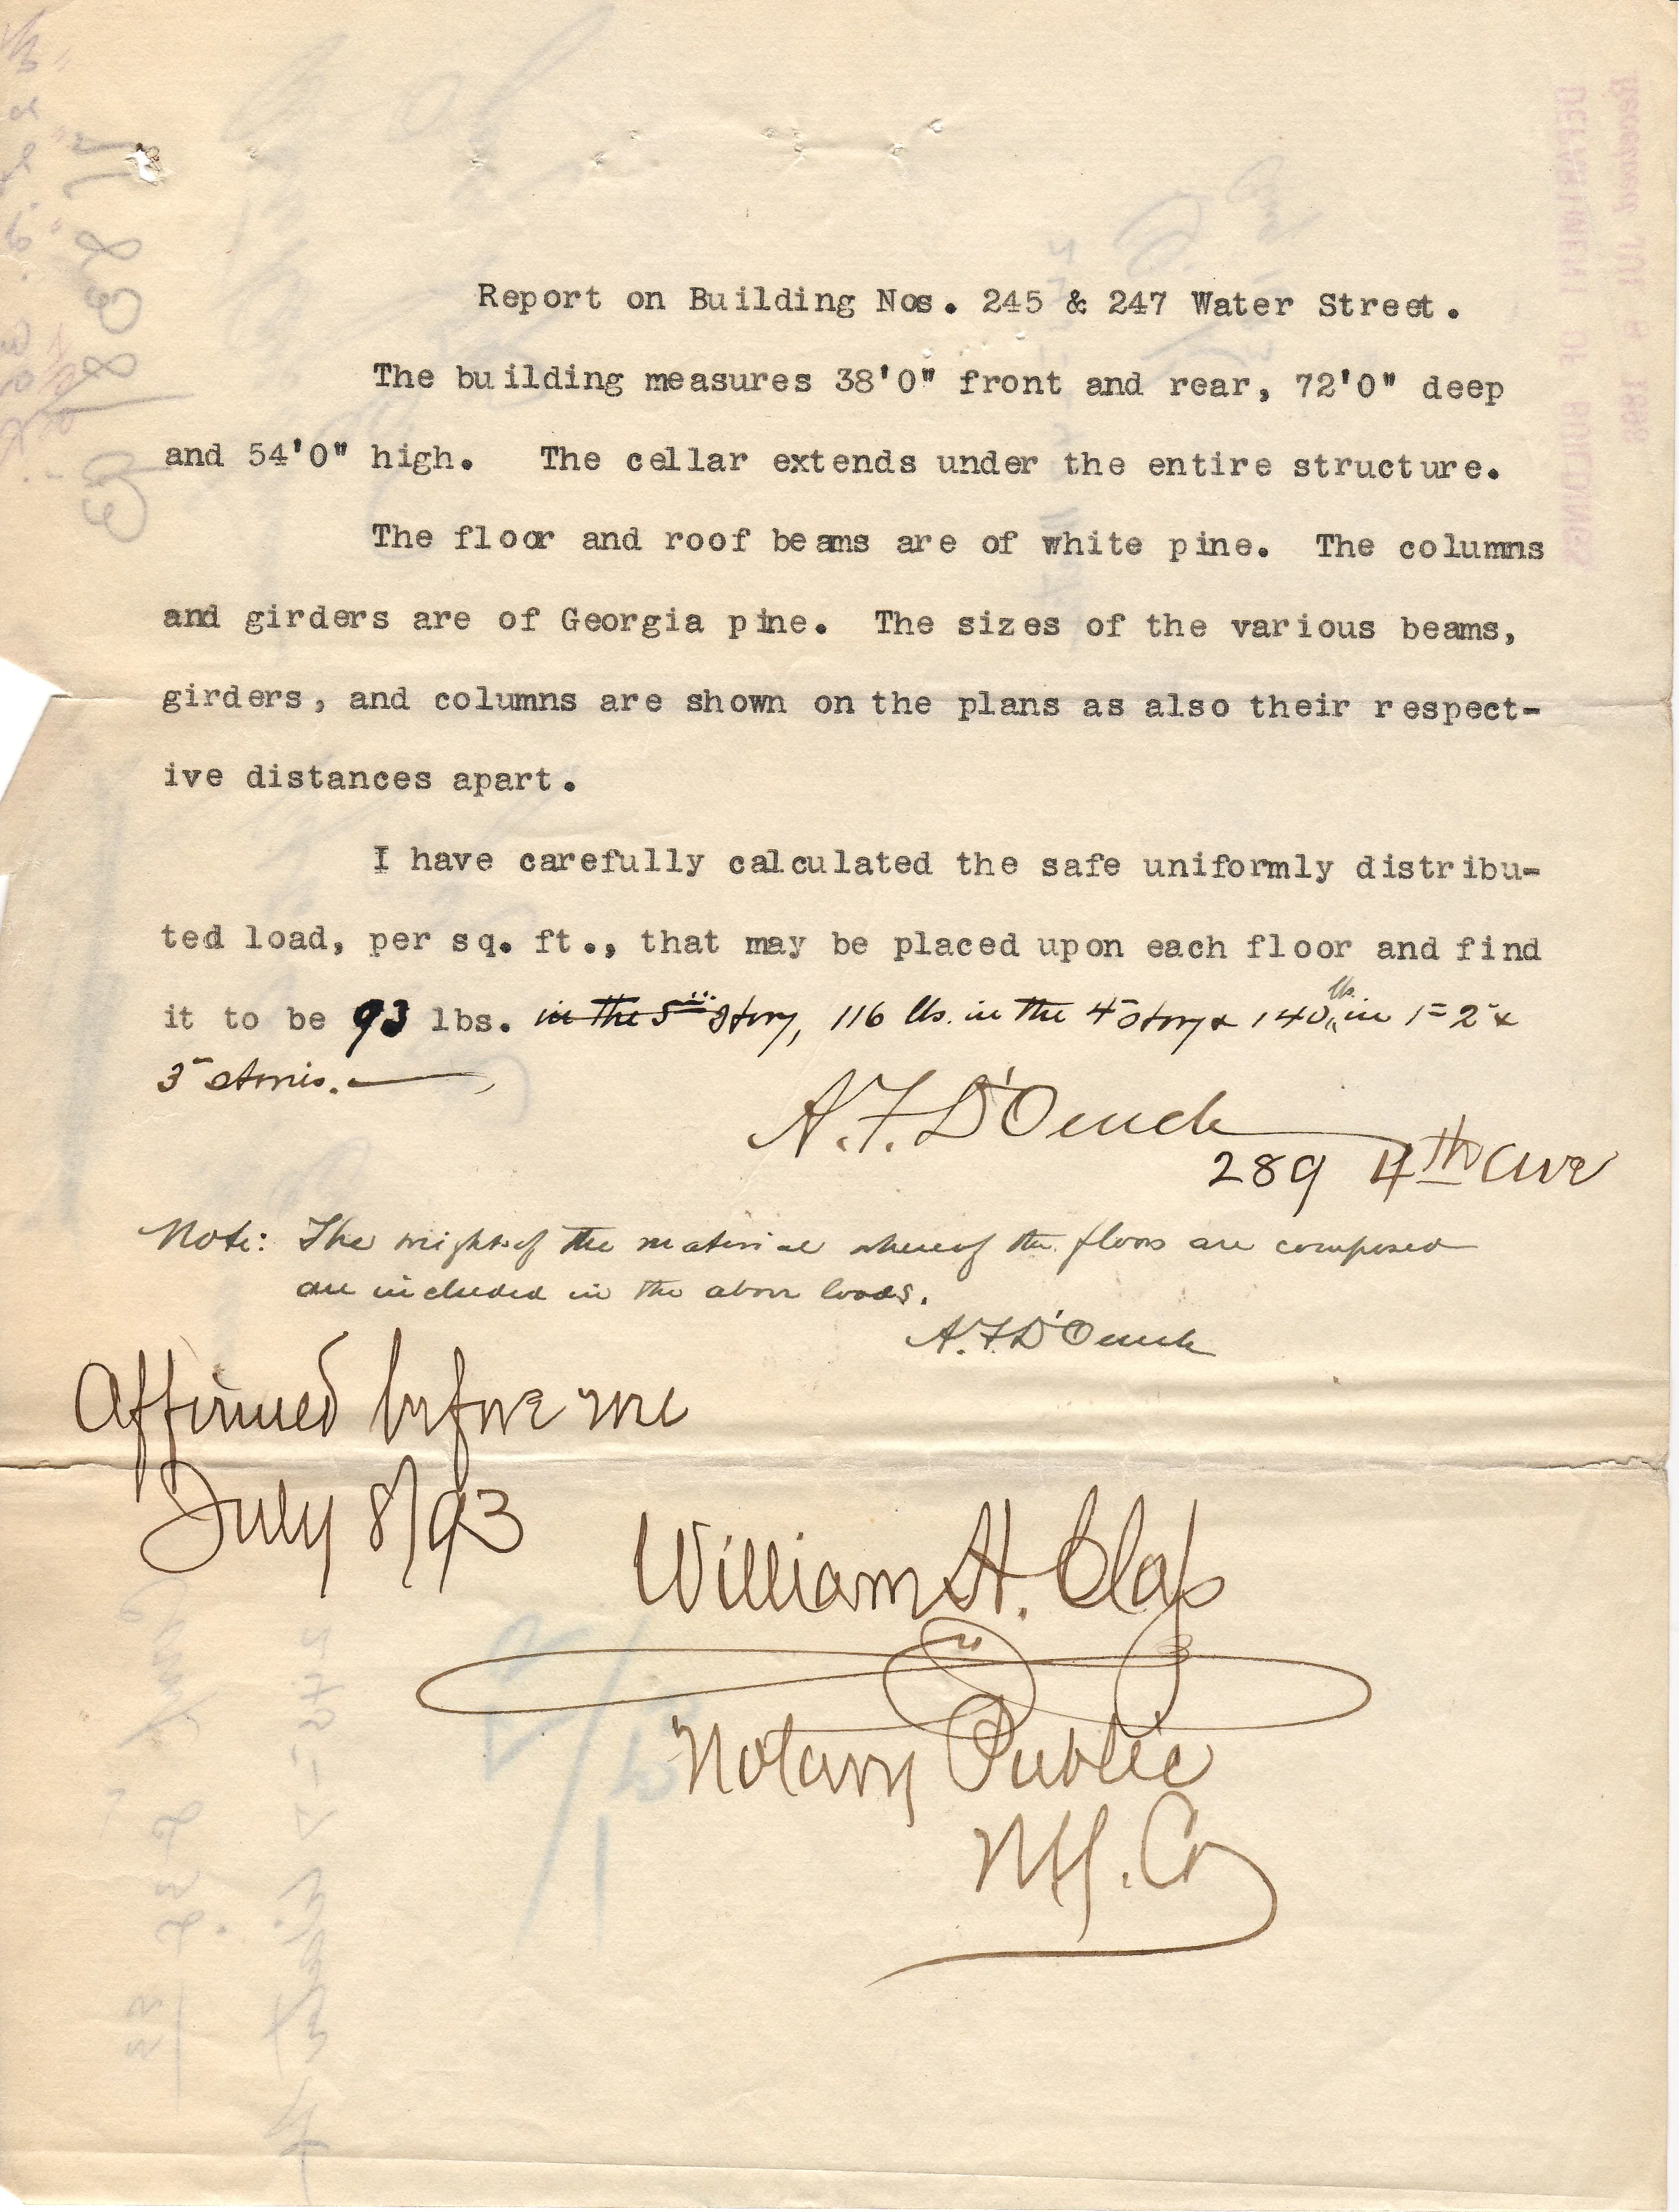 Report on Building Nos. 245 & 247 Water Street.
The building measures 38'0" front and rear, 72'0" deep
and 54'0" high. The cellar extends under the entire structure.
The floor and roof beams are of white pine. The columns
and girders are of Georgia pine. The sizes of the various beams,
girders, and columns are shown on the plans as also their respect-
ive distances apart.
I have carefully calculated the safe uniformly distribu-
ted load, per sq. ft., that may be placed upon each floor and find
it to be 93 lbs. in the 5th story, 116 lbs. in the 4 story & 140 lbs. in 1 2 &
3 stories.
A.F. D'Oench
289 4th Ave
Note: The weight of the material whereof the floors are composed
are included in the above loads.
A.F. D'Oench
Affirmed before me
July 8/93
William H. Clap
Notary Public
NY. Co
Received JUL 8 1893
DEPARTMENT OF BUILDINGS